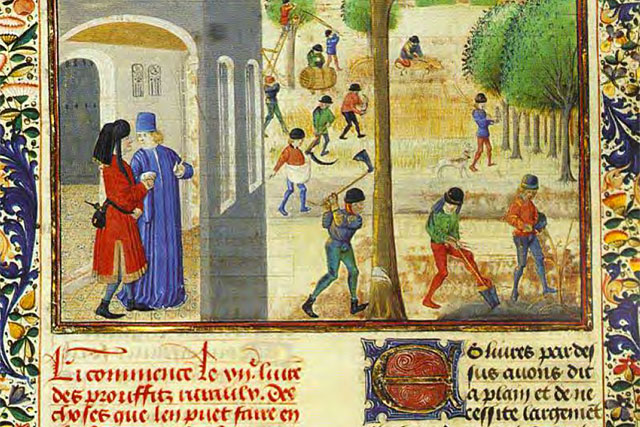 Ci commence le xije. liure
des prouffitz ruraulx. Des
choses que len puet faire en
Es liures par des
sus auons dit
a plain et de ne
cessite largemēt